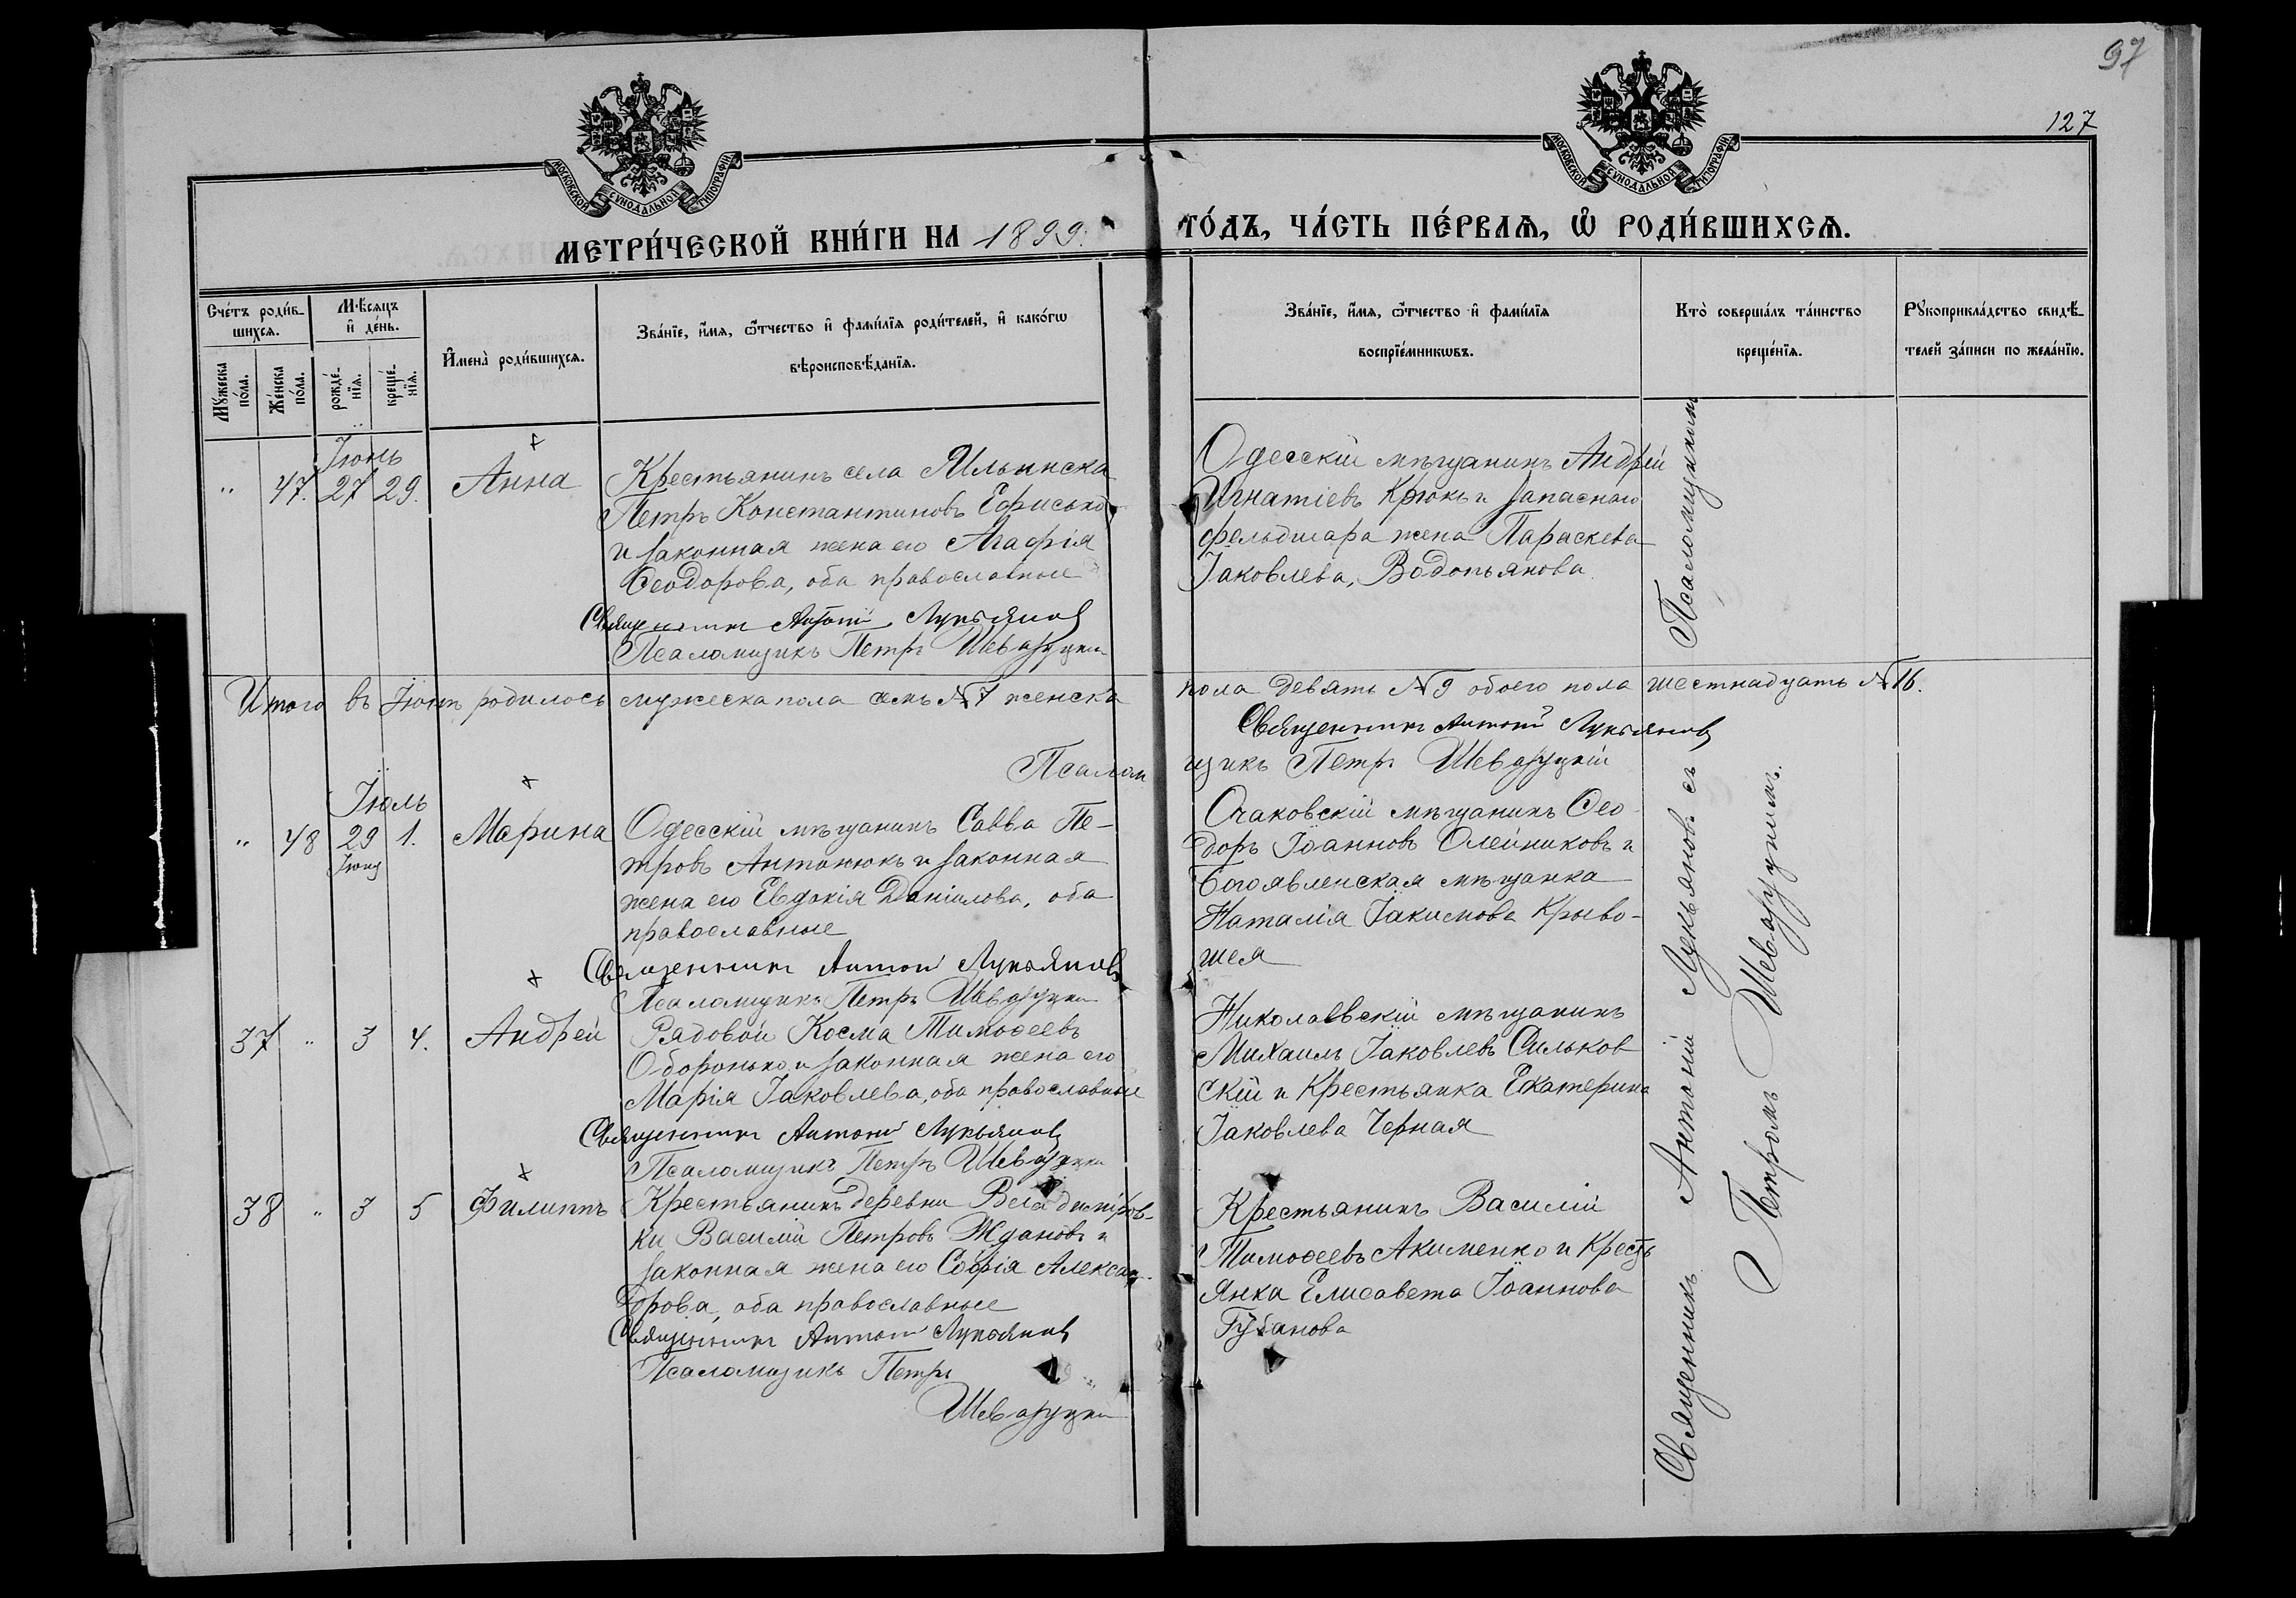 97
127
МОСКОВСКОЙ СѴНОДАЛЬНОЙ ТИПОГРАФІИ
МОСКОВСКОЙ СѴНОДАЛЬНОЙ ТИПОГРАФІИ
МЕТРИ́ЧЕСКОЙ КНИ́ГИ НА 1899. ГО́ДЪ, ЧА́СТЬ ПЕ́РВАѦ, Ѡ҆ РОДИ́ВШИХСѦ.
Сче́тъ роди́в-
шихсѧ.
Мꙋ́жеска по́ла.
Же́нска по́ла.
Мѣ́сѧцъ
и҆ де́нь.
рожде́-нїѧ.
креще́-нїѧ.
И҆мена̀ роди́вшихсѧ.
Зва́нїе, и҆́мѧ, ѻ҆́тчество и҆ фами́лїѧ роди́телей, и҆ како́гѡ
вѣроисповѣ́данїѧ.
Зва́нїе, и҆́мѧ, ѻ҆́тчество и҆ фами́лїѧ
воспрїе́мникѡвъ.
Кто̀ соверша́лъ та́инство
креще́нїѧ.
Рꙋкоприкла́дство свидѣ́-
телей за́писи по жела́нїю.
Іюнь
" 47. 27 29. Анна
Крестьянинъ села Ильинска
Петръ Константиновъ
и законная жена его Агафія
Ѳеодорова, оба православные
Священникъ Антоній Лукьяновъ
Псаломщикъ Петръ
Одесскій мѣщанинъ Андрей
Игнатіевъ Крюкъ и запаснаго
фельдшара жена Параскева
Іаковлева, Водопьянова
Итого въ Іюнѣ родилось мужеска пола семь №7 женска пола девять №9 обоего пола шестнадцать №16.
Священникъ Антоній Лукьяновъ
Псаломщикъ Петръ
Іюль
" 48 29 1. Марина
Іюня
Одесскій мѣщанинъ Савва Пе-
тровъ Антонюкъ и законная
жена его Евдокія Даніилова, оба
православные
Священникъ Антоній Лукьяновъ
Псаломщикъ Петръ
Очаковскій мѣщанинъ Ѳео-
доръ Іоанновъ Олейниковъ и
Богоявленская мѣщанка
Наталія Іакимова Криво-
шея
37 " 3 4. Андрей
Рядовой Косма Тимоѳеевъ
Оборонько и законная жена его
Марія Іаковлева, оба православные
Священникъ Антоній Лукьяновъ
Псаломщикъ Петръ
Николаевскій мѣщанинъ
Михаилъ Іаковлевъ Сильков
скій и Крестьянка Екатерина
Іаковлева Черная
38 " 3 5 Филиппъ
Крестьянинъ деревни
ки Василій Петровъ Ждановъ и
законная жена его Софія Алексан-
дрова, оба православные
Священникъ Антоній Лукьяновъ
Псаломщикъ Петръ
Крестьянинъ Василій
Тимоѳеевъ Акименко и Кресть
янка Елисавета Іоаннова
Губанова
Священникъ Антоній Лукьяновъ съ Псаломщикомъ
Петромъ